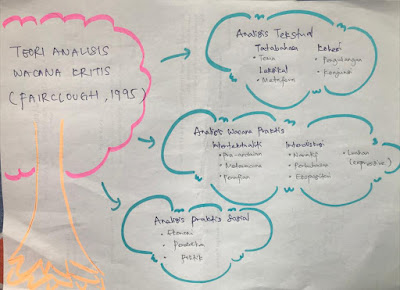 TEORI ANALISIS
WACANA KRITIS
(FAIRCLOUGH, 1995)
Analisis Tekstual
Tatabahasa
• Tema
Leksikal
• Metafora
Kohesi
• Pengulangan
• Konjungsi
Analisis Wacana Praktis
Intertekstualiti
• Pra-andaian
• Penafian
Interdiskursif
• Naratif
• Eksposisi
• Luahan
(expressive)
Analisis Praktis Sosial
• Ekonomi
• Politik